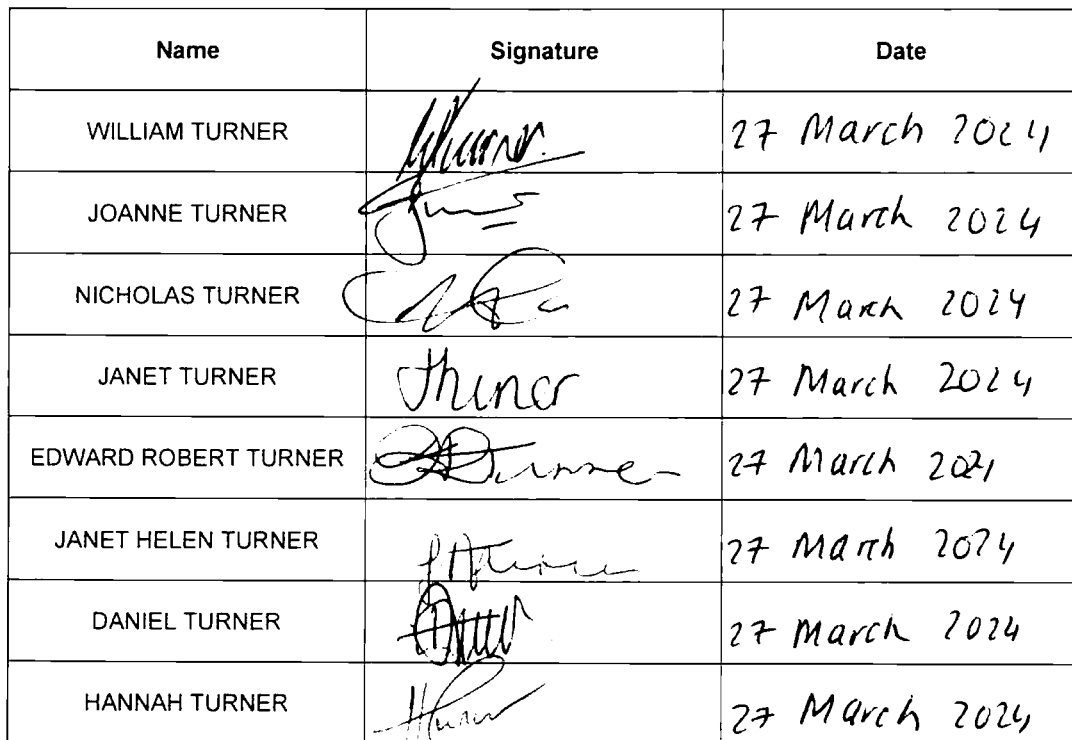 Name Signature Date
WILLIAM TURNER WTurner. 27 March 2024
JOANNE TURNER 27 March 2024
NICHOLAS TURNER 27 March 2024
JANET TURNER 27 March 2024
EDWARD ROBERT TURNER 27 March 2024
JANET HELEN TURNER 27 March 2024
DANIEL TURNER 27 March 2024
HANNAH TURNER 27 March 2024